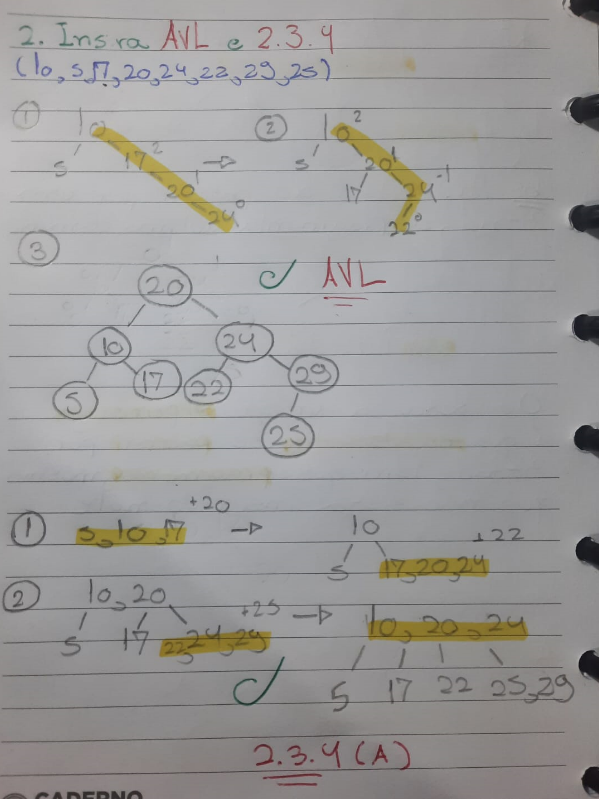 2. Insra AVL e 2.3.4
(10, 5, 17, 20, 24, 22, 29, 25)
① 10 ②
5 17 2
20 1
24 0
② 10 2
5 20 1
17 24 -1
22 0
③
20 AVL
10 24
5 17 22 29
25
① 5, 10, 17 +20
10 +22
5 17, 20, 24
② 10, 20
5 17 22, 24, 29 +25
10, 20, 24
5 17 22 25, 29
2.3.4 (A)
CADERNO